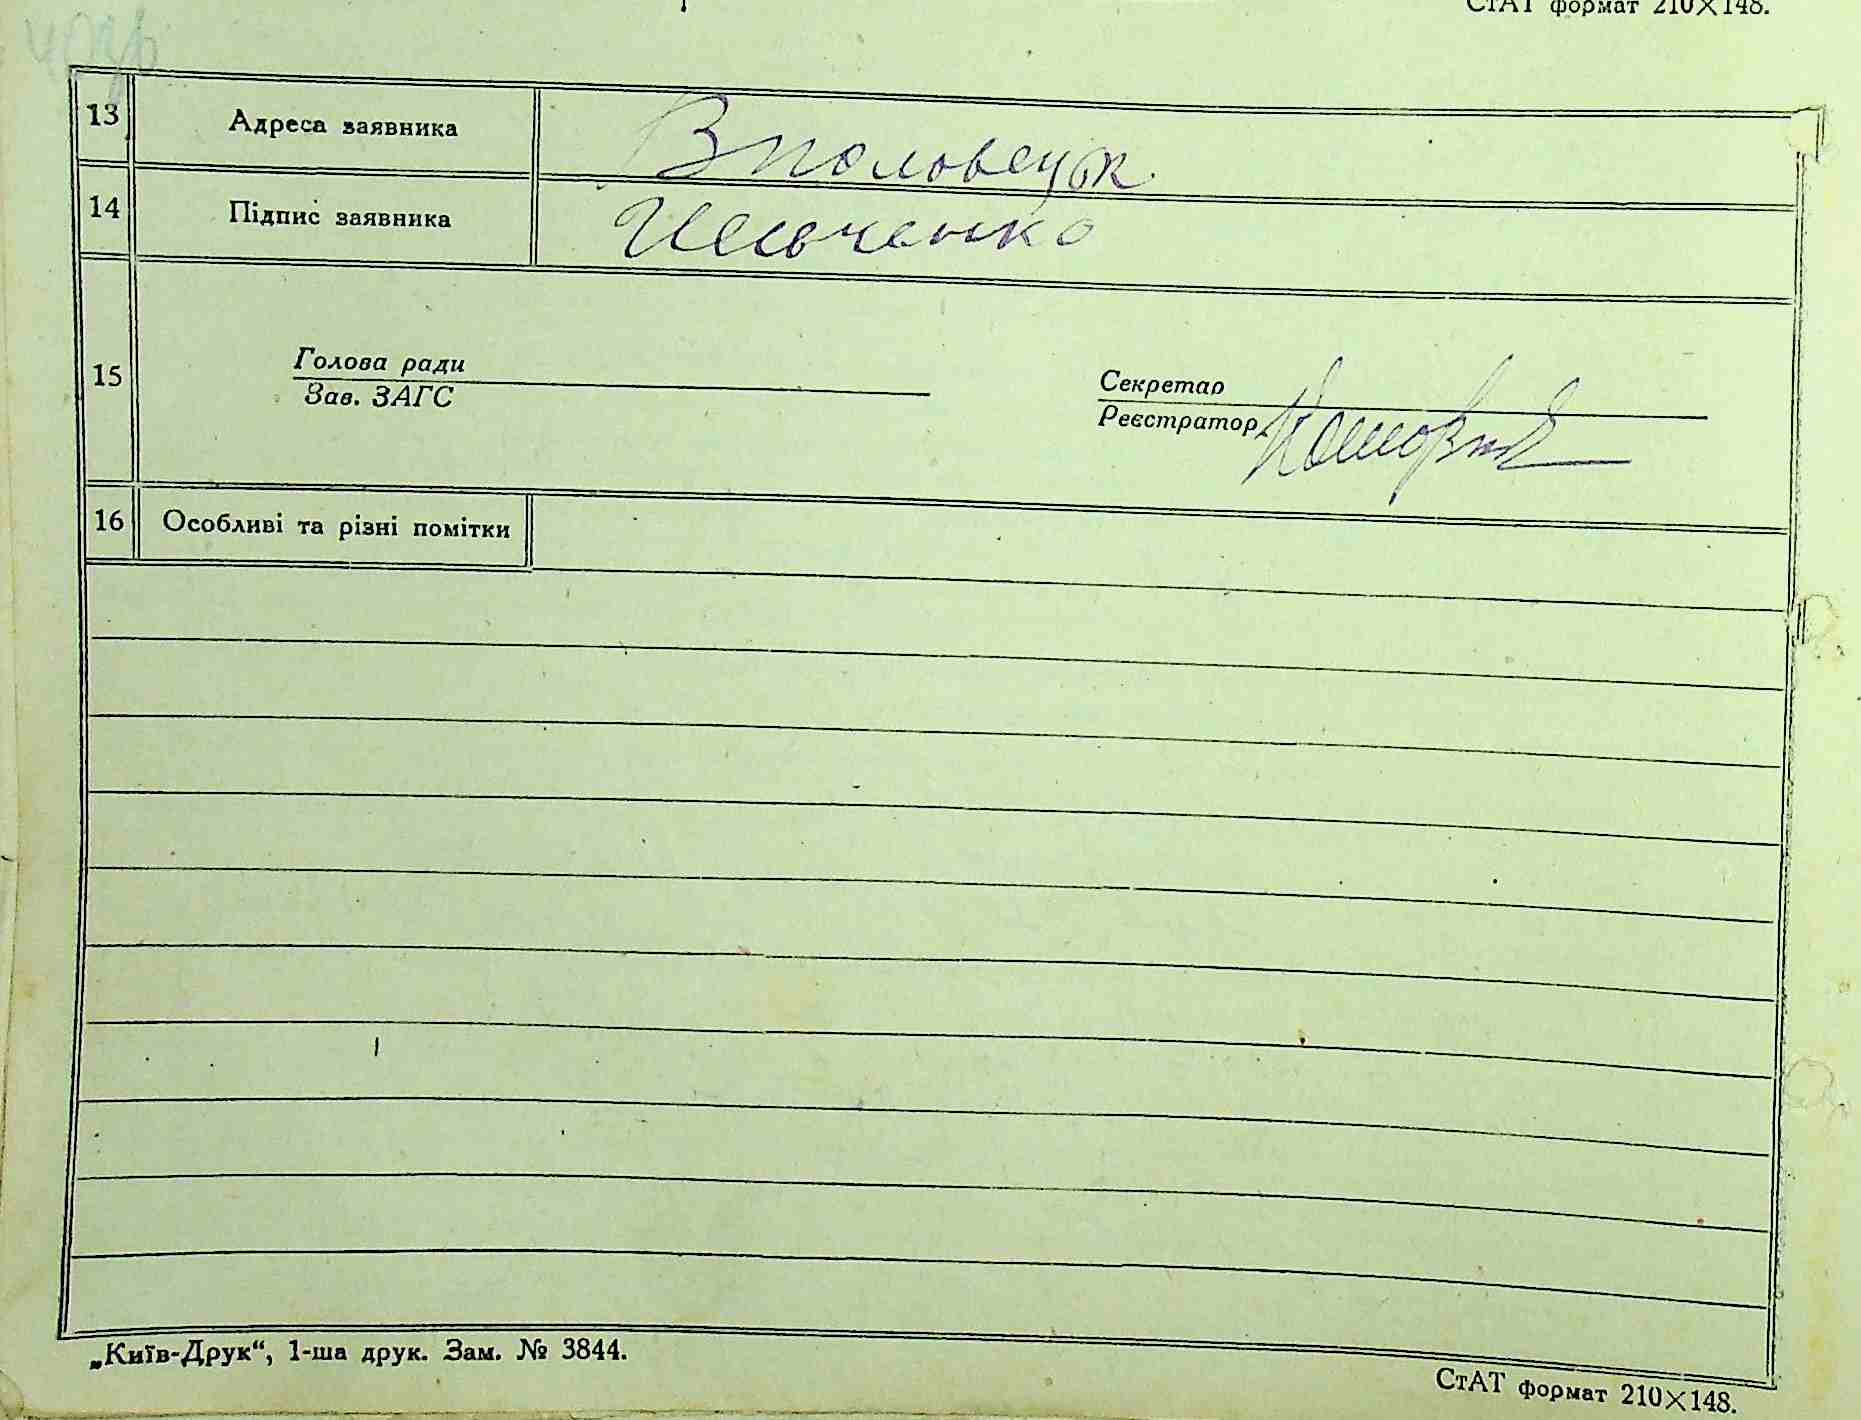 СтАТ формат 210×148.
13 Адреса заявника В половецк
14 Підпис заявника Ильченко
15 Голова ради
Зав. ЗАГС
Секретар
Реєстратор
16 Особливі та різні помітки
„Київ-Друк“, 1-ша друк. Зам. № 3844.
СтАТ формат 210×148.